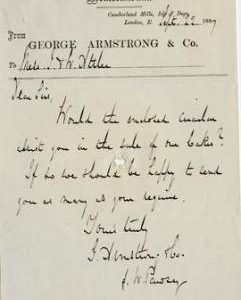 Cumberland Mills, Isle of Dogs,
London, E. Sept. 22 1889
From
GEORGE ARMSTRONG & Co.
To Messrs J & W Attlee
Dear Sirs,
Would the enclosed circular
assist you in the sale of our Cakes?
If so we should be happy to send
you as many as you require.
Yours truly
G Armstrong & Co.